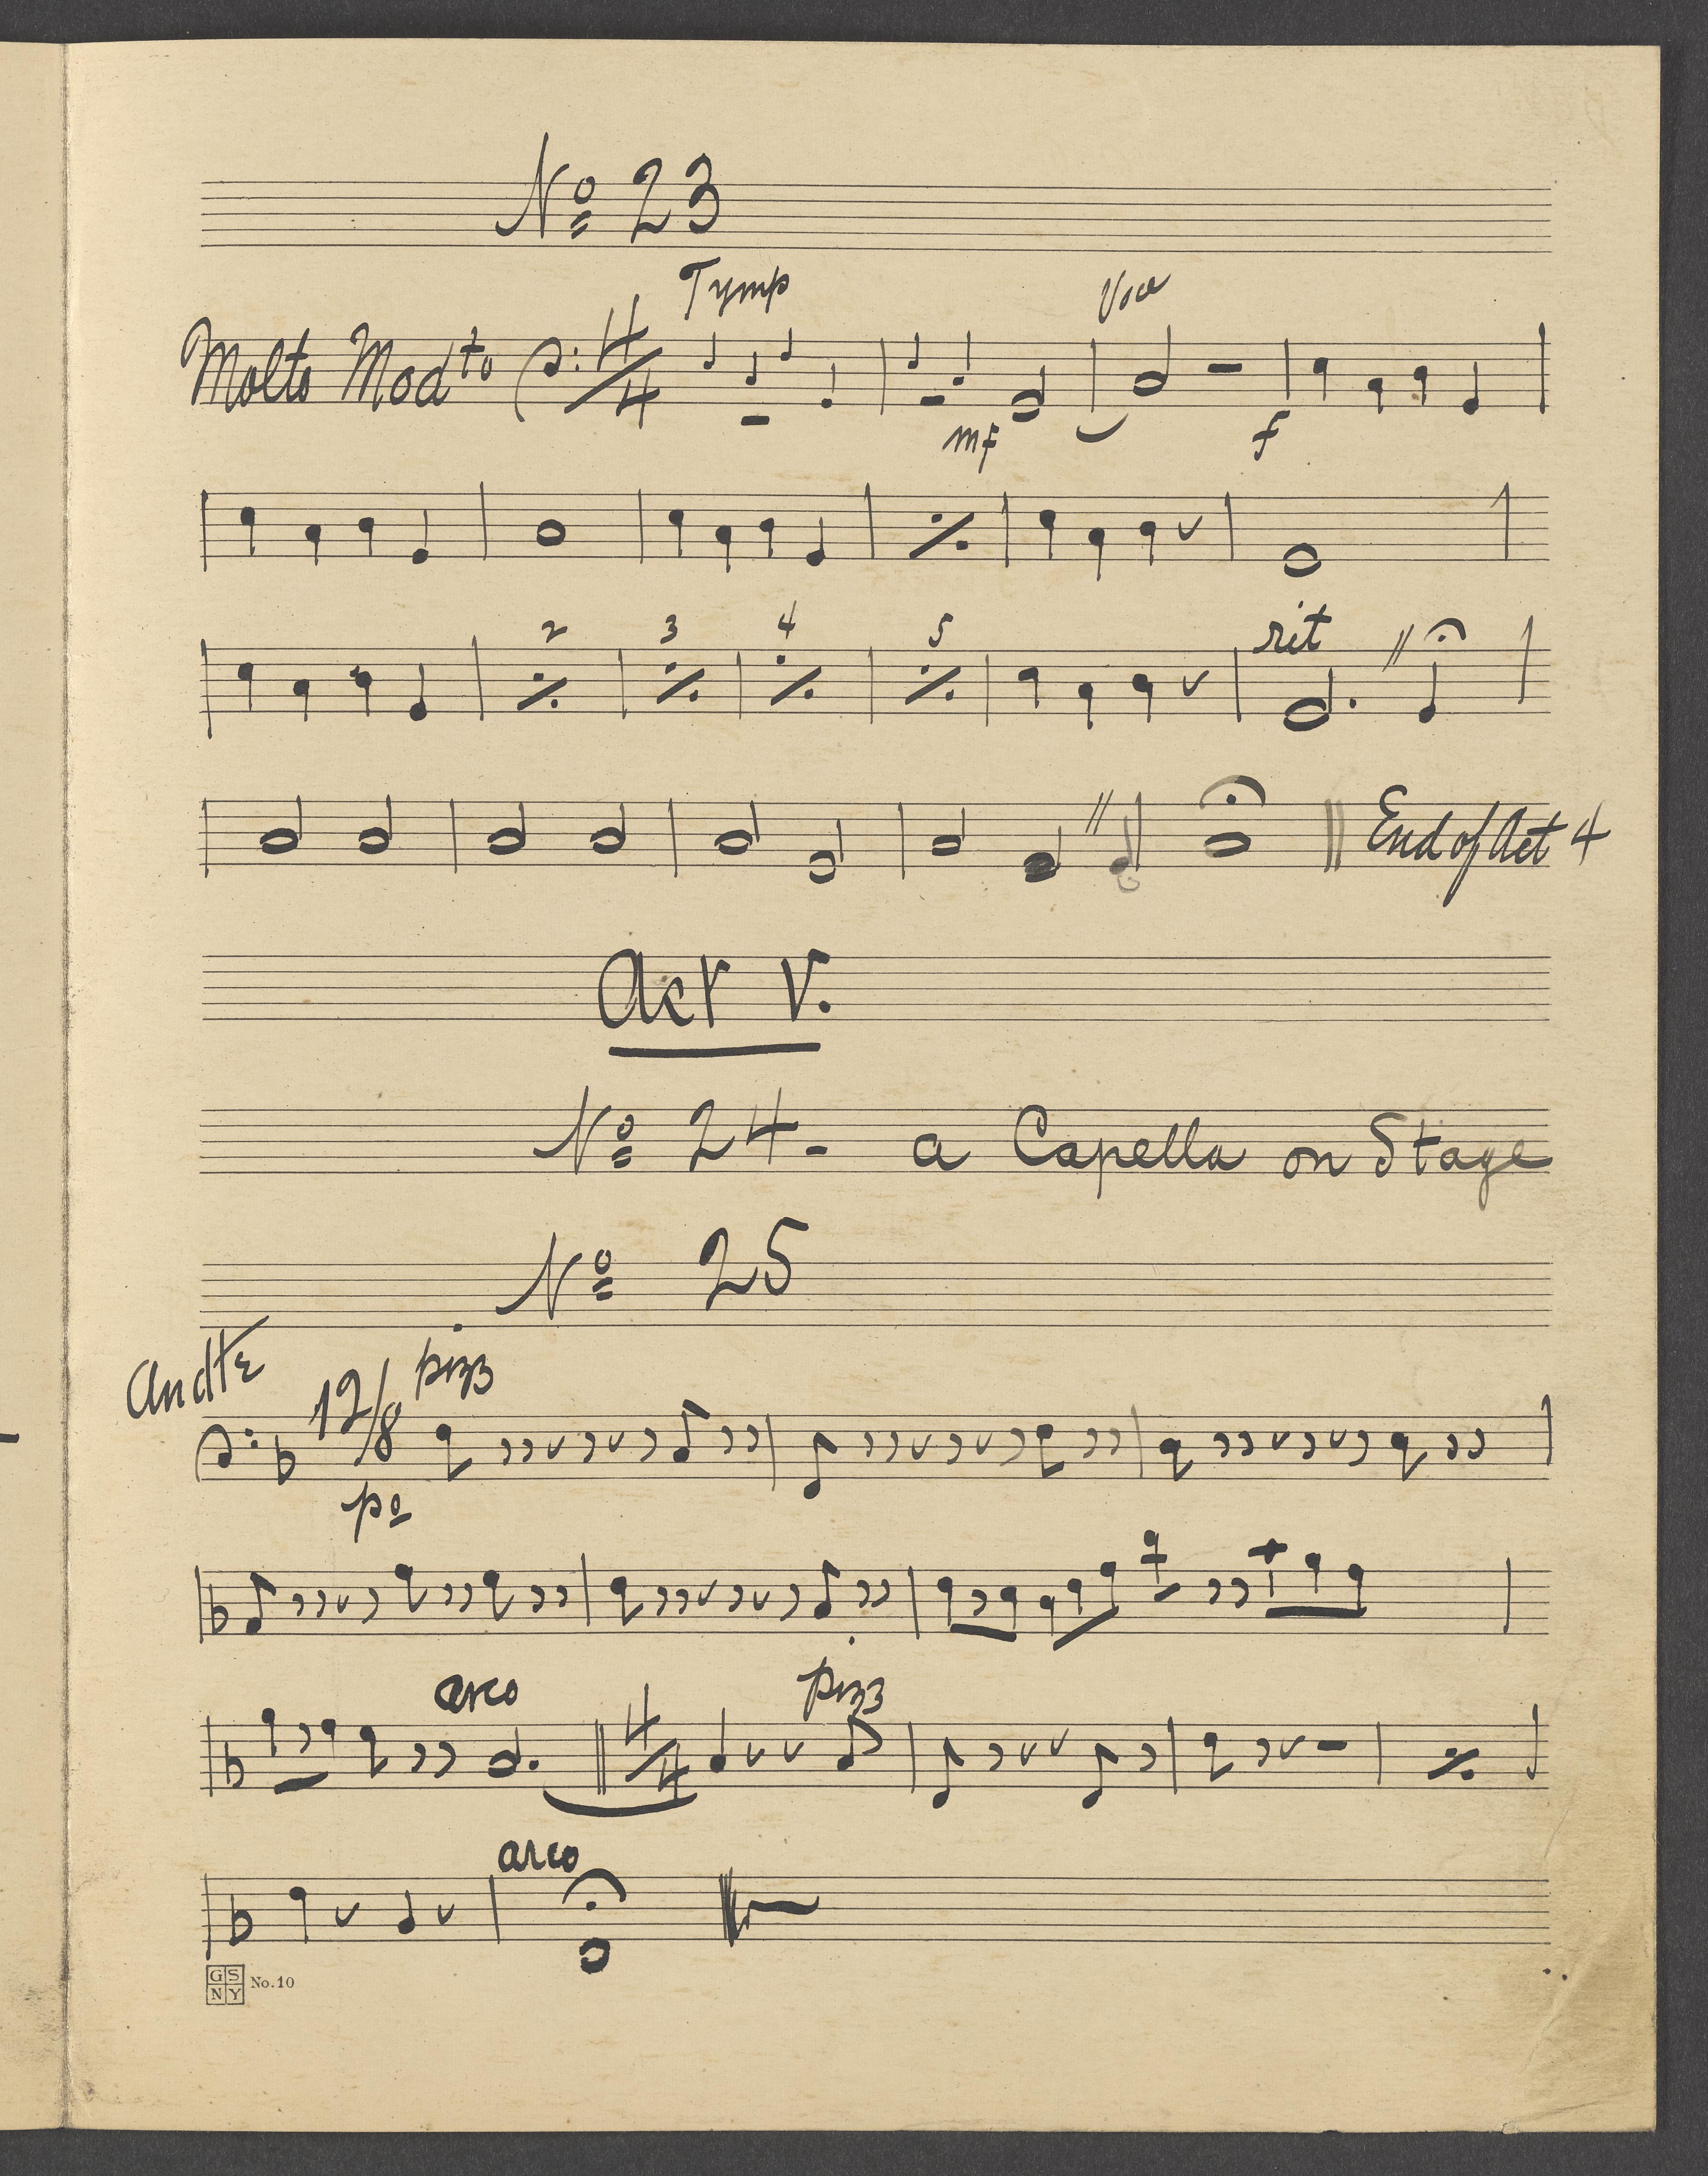 Nº 23
Tymp Voce
Molto Modto 4/4
mf f
2 3 4 5 rit
End of Act 4
Act V.
Nº 24- a Capella on Stage
Nº 25
Andte 12/8 pizz
po
arco 4/4 pizz
arco
GSNY No.10